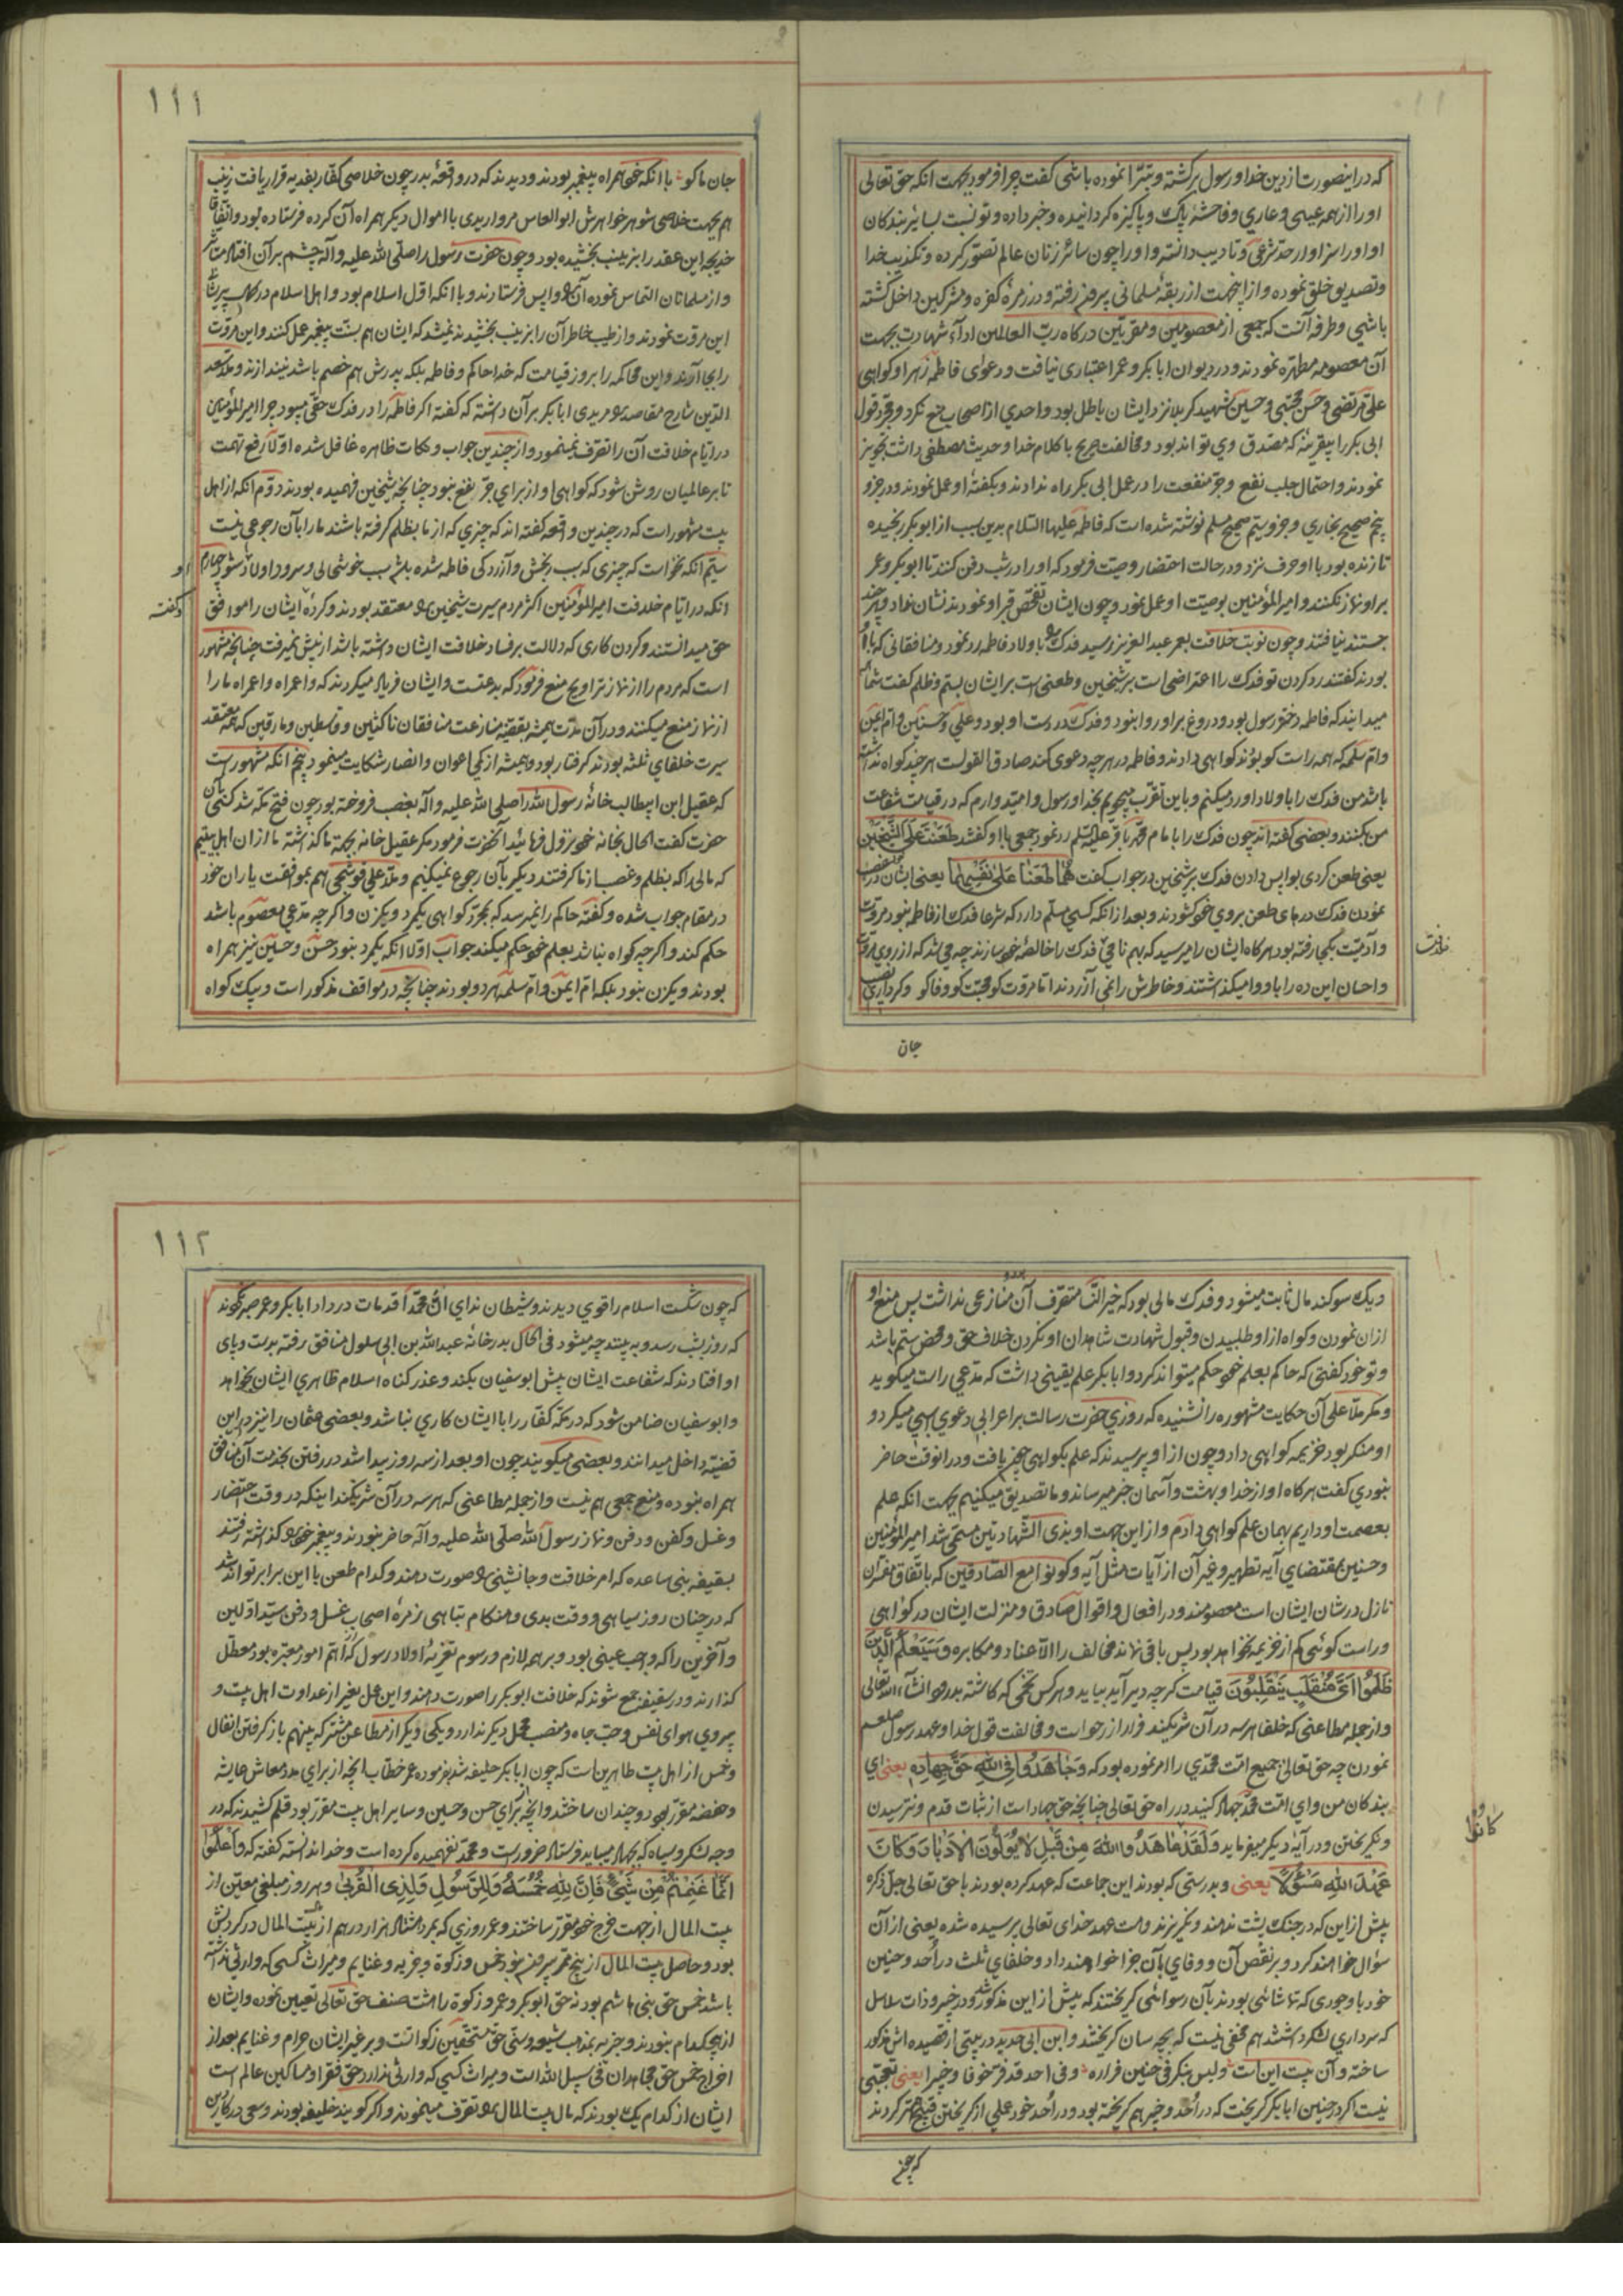 که در اینصورت از دین خدا و رسول برگشته و تبرّا نموده باشی گفت چرا فرمود بجهت انکه حق تعالی
او را از همه عیبی و عاری و فاحشهٔ پاک و پاکیزه گردانیده و خبر داده و تو نسبت بسائر بندکان
او او را سزاوار حدّ شرعی و تادیب دانسته و او را چون سائر زنان عالم تصوّر کرده و تکذیب خدا
و تصدیق خلق نموده و از اینجهت از ربقهٔ مسلمانی بیرون رفته و در زمرهٔ کفره و مشرکین داخل گشته
باشی و طرفه آنست که جمعی از معصومین و مقربین درکاه ربّ العالمین اداء شهادت بجهت
آن معصومه مطهره نمودند و در دیوان ابابکر و عمر اعتباری نیافت و دعوٰی فاطمه زهرا و کواهی
علی مرتضی و حسن مجتبی و حسین شهید کربلا نزد ایشان باطل بود و احدی از اصحاب منع نکرد و مجرّد قول
ابی بکر را بیقرینهٔ که مصدق وی تواند بود و مخالفت صریح با کلام خدا و حدیث مصطفی داشت تجویز
نمودند و احتمال جلب نفع و جرّ منفعت را در عمل ابی بکر راه ندادند و بکفتهٔ او عمل نمودند و در جزو
پنجم صحیح بخاری و جزو سیّم صحیح مسلم نوشته شده است که فاطمه علیها السّلام بدین سبب از ابوبکر رنجیده
تا زنده بود با او حرف نزد و در حالت احتضار وصیت فرمود که او را در شب دفن کنند تا ابوبکر و عمر
بر او نماز نکنند و امیر المؤمنین بوصیت او عمل نمود و چون ایشان تفحّص قبر او نمودند نشان نداد و هرچند
جستند نیافتند و چون نوبت خلافت بعمر عبد العزیز رسید فدک را باولاد فاطمه رد نمود و منافقانی که با او
بودند کفتند رد کردن تو فدک را اعتراضی است بر شیخین و طعنی است بر ایشان بستم و ظلم گفت شما
میدانید که فاطمه دختر رسول بود و دروغ بر او روا نبود و فدک در دست او بود و علی و حسنین و ام ایمن
و ام سلمه که همه راست کو بودند کواهی دادند و فاطمه در هر چه دعوی کند صادق القولست هر چند کواه نداشته
باشد من فدک را باولاد او رد میکنم و باین تقرب میجویم بخدا و رسول و امیدوارم که در قیامت شفاعت
من کنند و بعضی کفته اند چون فدک را بامام محمّد باقر علیه السّلم رد نمود جمعی با او کفتند طَعَنْتَ عَلَی الشَّیْخَیْنِ
یعنی طعن کردی بوا پس دادن فدک بر شیخین در جواب گفت هُمَا طَعَنَا عَلٰی نَفْسِهِمَا یعنی ایشان در غصب
نمودن فدک در های طعن بروی خود کشودند و بعد از انکه کسی مسلم دارد که شرعا فدک از فاطمه نبود مروّت
و آدمیّت بکجا رفته بود هرکاه ایشان را میرسید که بهم نامی فدک را خالصهٔ خود سازند چه می شد که از روی مروّت
و احسان این ده را باو وا میکذاشتند و خاطرش را نمی آزردند اما مروت کو محبّت کو وفا کو و کرداری
جان
جان ما کو با انکه خود همراه پیغمبر بودند و دیدند که در وقعهٔ بدر چون خلاصی کفّار بفدیه قرار یافت زینب
هم بجهت خلاصی شوهر خواهرش ابو العاص مرواریدی با اموال دیکر همراه آن کرده فرستاده بود و اتّفاقا
خدیجه این عقد را بزینب بخشیده بود و چون حضرت رسول را صلّی الله علیه و آله چشم بر آن افتاد
و از مسلمانان التماس نموده آن را واپس فرستادند و با انکه اوّل اسلام بود و اهل اسلام در کمال پریشانی
این مروّت نمودند و از طیب خاطر آن را بزینب بخشیدند نمیشد که ایشان هم بسنّت پیغمبر عمل کنند و این مروّت
را بجا آرند و این محاکمه را بروز قیامت که خدا حاکم و فاطمه بلکه پدرش هم خصم باشد نیندازند و ملّا سعد
الدّین شارح مقاصد را مریدی ابابکر بر آن داشته که گفته اکر فاطمه را در فدک حقّی میبود چرا امیر المؤمنین
در ایّام خلافت آن را تصرّف نمینمود و از چندین جواب و نکات ظاهره غافل شده اوّلا رفع تهمت
تا بر عالمیان روشن شود که کواهی او از برای جرّ نفع نبود چنانچه شیخین فهمیده بودند دوّم انکه از اهل
بیت مشهور است که در چندین وقعه کفته اند که چیزی که از ما بظلم کرفته باشند ما را بآن رجوعی نیست
سیّم انکه نخواست که چیزی که سبب رنجش و آزردکی فاطمه شده باشد سبب خوشحالی و سرور اولاد شود چهارم
انکه در ایّام خلافت امیر المؤمنین اکثر مردم سیرت شیخین را معتقد بودند و کردهٔ ایشان را موافق
حق میدانستند و کردن کاری که دلالت بر فساد خلافت ایشان داشته باشد از پیش نمیرفت چنانچه مشهور
است که مردم را از نماز تراویح منع فرمود که بدعتست و ایشان فریاد میکردند که وا عمراه وا عمراه ما را
از نماز منع میکنند و در آن مدّت همیشه بقضیّه منازعت منافقان ناکثین و قاسطین و مارقین که همه معتقد
سیرت خلفای ثلثه بودند کرفتار بود و همیشه از کمی اعوان و انصار شکایت مینمود پنجم انکه مشهور است
که عقیل ابن ابیطالب خانهٔ رسول الله را صلی الله علیه و آله بغصب فروخته بود چون فتح مکّه شد کسی بآن
حضرت گفت الحال بخانه خود نزول فرمائید آنحضرت فرمود مکر عقیل خانه بجهت ما کذاشته ما از ان اهل بیتیم
که مالی را که بظلم و غصب از ما کرفتند دیکر بآن رجوع نمیکنیم و ملّا علی قوشجی هم بموافقت یاران خود
در مقام جواب شده و گفته حاکم را نمیرسد که بمجرّد کواهی یکمرد و یکزن و اکر چه مدّعی معصوم باشد
حکم کند و اکر چه کواه نباشد بعلم خود حکم میکند جواب اوّلا انکه یکمرد نبود حسن و حسین نیز همراه
بودند و یکزن نبود بلکه امّ ایمن و امّ سلمه هر دو بودند چنانچه در مواقف مذکور است و بیک کواه
و یک سوکند مال ثابت میشود و فدک مالی بود که خیر النّسا متصرّف آن بود و منازعی نداشت پس منع او
از ان نمودن و کواه از او طلبیدن و قبول شهادت شاهدان او نکردن خلاف حق و محض ستم باشد
و تو خود کفتی که حاکم بعلم خود حکم میتواند کرد و ابابکر علم یقینی داشت که مدّعی راست میکوید
و مکر ملّا علی آن حکایت مشهوره را نشنیده که روزی حضرت رسالت بر اعرابی دعوی اسبی میکرد و
او منکر بود خزیمه کواهی داد و چون از او پرسیدند که علم بکواهی چون یافت و در انوقت حاضر
نبودی کفت هرکاه او از خدا و بهشت و آسمان خبر میرساند و ما تصدیق میکنیم بجهت انکه علم
بعصمت او داریم بهمان علم کواهی دادم و از این جهت او بذی الشّهادتین مسمّی شد امیر المؤمنین
و حسنین بمقتضای آیه تطهیر و غیر آن از آیات مثل آیه و کونوا مع الصّادقین که باتّفاق مفسّران
نازل در شان ایشان است معصومند و در افعال و اقوال صادق و منزلت ایشان در کواهی
و راست کوئی کم از خزیمه نخواهد بود پس باقی نماند مخالف را الّا عناد و مکابره وَ سَیَعْلَمُ الَّذِینَ
ظَلَمُوا اَیَّ مُنْقَلَبٍ یَنْقَلِبُونَ قیامت کر چه دیر آید بیاید و هر کس تخمی که کاشته بدرود انشآء الله تعالی
و از جمله مطاعنی که خلفا هر سه در آن شریکند فرار از زحف است و مخالفت قول خدا و عهد رسول صلعم
نمودن چه حق تعالی جمیع امّت محمّدی را امر نموده بود که وَ جَاهَدُوا فِی اللّٰهِ حَقَّ جِهَادِهِ یعنی ای
بندکان من و ای امّت محمّد جهاد کنید در راه حق تعالی چنانچه حق جهاد است از ثبات قدم و نترسیدن
و نکریختن و در آیهٔ دیکر میفرماید وَ لَقَدْ عَاهَدُوا اللهَ مِنْ قَبْلُ لَا یُوَلُّونَ الْاَدْبَارَ وَ کَانَ
عَهْدُ اللّٰهِ مَسْئُولًا یعنی و بدرستی که بودند این جماعت که عهد کرده بودند با حق تعالی جلّ ذکره
پیش از این که در جنک پشت ندهند و نکریزند و هست عهد خدای تعالی پرسیده شده یعنی از آن
سؤال خواهند کرد و بر نقض آن و وفای بآن جزا خواهند داد و خلفای ثلث در اُحد و حنین
خود با وجودی که تماشائی بودند بآن رسوائی کریختند که پیش از این مذکور شد و در خیبر و ذات سلاسل
که سرداری لشکر داشتند هم مخفی نیست که بچه سان کریختند و ابن ابی حدید در بیتی از قصیده اش مذکور
ساخته و آن بیت این است ولیس بنکر فی حنین فراره وفی احد قد فرّ خوفا و خیبرا یعنی تعجّبی
نیست اکر در حنین ابابکر کریخت که در اُحد و خیبر هم کریخته بود و در اُحد خود علی از کریختن قبیح تر کردند
که چون
که چون شکست اسلام را قوی دیدند و شیطان ندای انّ محمّدا قد مات در داد ابابکر و عمر صبر نکردند
که روز بشب رسد و ببینند چه میشود فی الحال بدر خانهٔ عبد الله بن ابی سلول منافق رفته بدست و پای
او افتادند که شفاعت ایشان پیش ابو سفیان بکند و عذر کناه اسلام ظاهری ایشان بخواهد
و ابو سفیان ضامن شود که در مکّه کفّار را با ایشان کاری نباشد و بعضی عثمان را نیز در این
قضیّه داخل میدانند و بعضی میکویند چون او بعد از سه روز پیدا شد در رفتن بخدمت آن منافق
همراه نبوده و منع جمعی هم نیست و از جمله مطاعنی که هر سه در آن شریکند اینکه در وقت احتضار
و غسل و کفن و دفن و نماز رسول الله صلّی الله علیه و آله حاضر نبودند و پیغمبر خود را کذاشته رفتند
بسقیفه بنی ساعده که امر خلافت و جانشینی را صورت دهند و کدام طعن با این برابر تواند شد
که در چنان روز سیاهی و وقت بدی و هنکام تباهی زمرهٔ اصحاب غسل و دفن سیّد اوّلین
و آخرین را که واجب عینی بود و بر همه لازم و رسوم تعزیهٔ اولاد رسول که اهّم امور معتبره بود معطّل
کذارند و در سقیفه جمع شوند که خلافت ابوبکر را صورت دهند و این عمل بغیر از عداوت اهل بیت و
پیروی هوای نفس و حبّ جاه و منصب محمل دیکر ندارد و یکی دیکر از مطاعن مشترکه بینهم باز کرفتن انفال
و خمس از اهل بیت طاهرین است که چون ابابکر خلیفه شد بفرموده عمر خطّاب انچه از برای مدد معاش عایشه
و حفصه مقرّر بود دو چندان ساختند و انچه برای حسن و حسین و سایر اهل بیت مقرّر بود قلم کشیدند که در
وجه لشکر و سپاه که بجهاد میباید فرستاد ضرور است و محمّد نفهمیده کرده است و خدا ندانسته کفته که وَ اعْلَمُوا
اَنَّمَا غَنِمْتُمْ مِنْ شَیْءٍ فَاَنَّ لِلّٰهِ خُمُسَهُ وَ لِلرَّسُولِ وَ لِذِی الْقُرْبٰی و هر روز مبلغی معیّن از
بیت المال از جهت خرج خود مقرّر ساختند و عمر روزی که بمرد هشتاد هزار درهم از بیت المال در کردنش
بود و حاصل بیت المال از پنج ممرّ بیرون نبود خمس و زکوة و جزیه و غنایم و میراث کسی که وارثی نداشته
باشد خمس حق بنی هاشم بود نه حق ابوبکر و عمر و زکوة را هشت صنف حق تعالی تعیین نموده و ایشان
از هیچکدام نبودند و جزیه بمذهب شیعه و سنّی حق مستحقین زکواتست و بر غیر ایشان حرام و غنایم بعد از
اخراج خمس حق مجاهدان فی سبیل الله است و میراث کسی که وارثی ندارد حق فقرا و مساکین عالم است
ایشان از کدام یک بودند که مال بیت المال را تصرف مینمودند و اکر کویند خلیفه بودند و سعی در کار دین
۱۱۱
۱۱۲